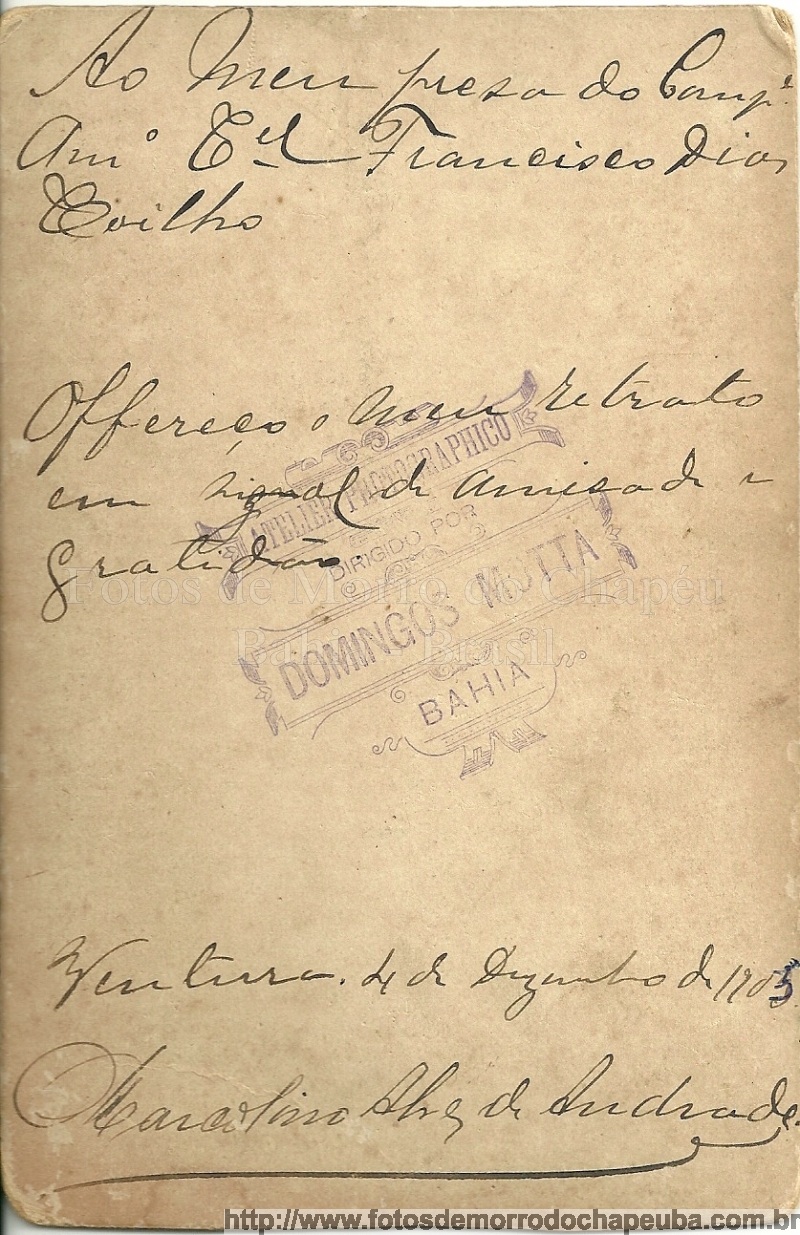 Ao Meu presado Comp.e
Am.o Cel Francisco Dias
Coilho
Offereço o meu retrato
em signal de amisade e
gratidão.
ATELIER PHOTOGRAPHICO
DIRIGIDO POR
DOMINGOS MOTTA
BAHIA
Fotos de Morro do Chapéu
Bahia Brasil
Ventura. 4 de Dezembro de 1905
Marcolino Alves de Andrade.
http://www.fotosdemorrodochapeuba.com.br